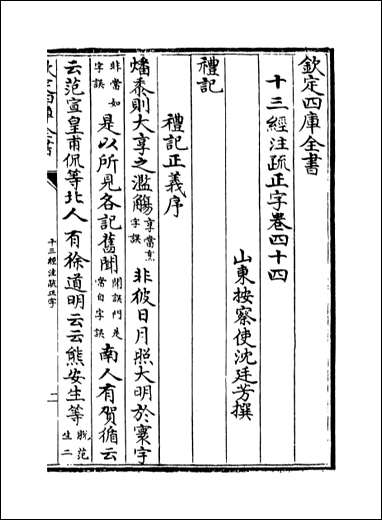 欽定四庫全書
十三經注疏正字卷四十四
山東按察使沈廷芳撰
禮記
禮記正義序
燔黍則大享之濫觴享當烹字誤非彼日月照大明於寰宇
非當如字誤是以所見各記舊聞聞誤門是當自字誤南人有賀循云
云范宣皇甫侃等北人有徐道明云云熊安生等脱范生二
十三經注疏正字